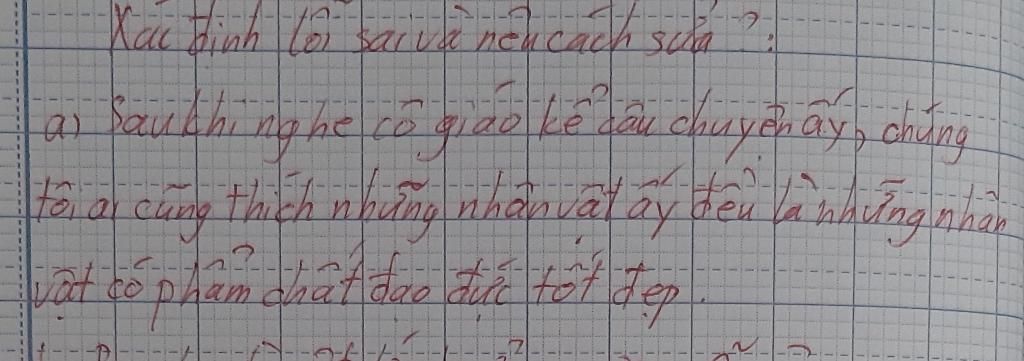 Xác định lỗi sai và nêu cách sửa?:
a) Sau khi nghe cô giáo kể câu chuyện ấy, chúng
tôi, ai cũng thích những nhân vật ấy đều là những nhân
vật có phẩm chất đạo đức tốt đẹp.